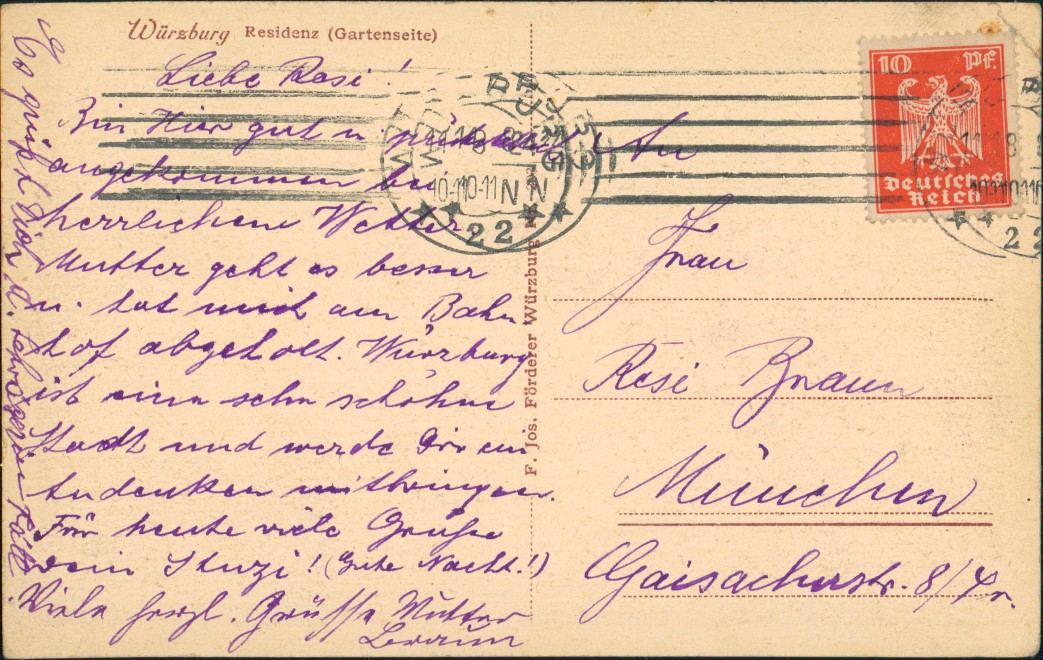 Würzburg Residenz (Gartenseite)
Liebe Resi!
Bin Hier gut u.
angekommen bei
herrlichem Wetter
Mutter geht es besser
u. hat mich am Bahn
hof abgeholt. Würzburg
ist eine sehr schöhne
Stadt und werde Dir ein
Andenken mitbringen.
Für heute viele Grüße
dein Stuzi! (Gute Nacht!)
Viele herzl. Grüsse Mutter
Braun
Es grüßt Dich d. Schwägerin
F. Jos. Förderer Würzburg
10-11 N
22
10 Pf.
Deutsches
Reich
An
Frau
Resi Braun
München
Gaisacherstr. 8/4 r.